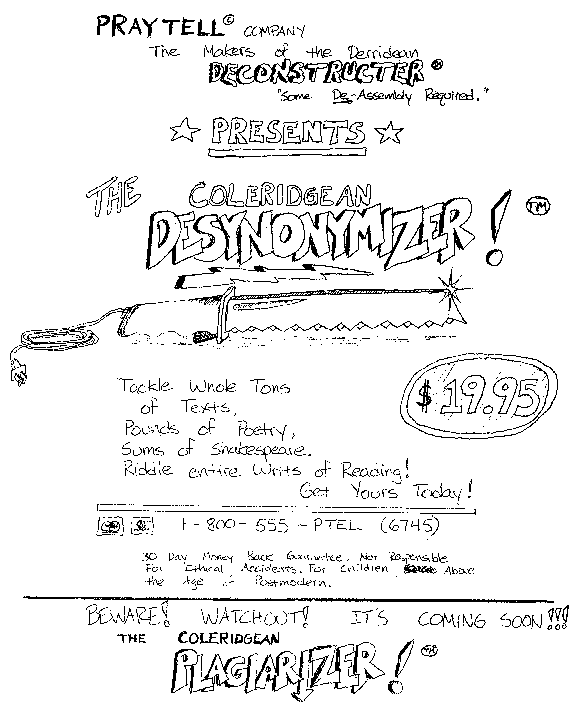 PRAYTELL© COMPANY
The Makers of the Derridean
DECONSTRUCTER®
"Some De-Assembly Required."
☆ PRESENTS ☆
THE COLERIDGEAN
DESYNONYMIZER! ™
Tackle Whole Tons
of Texts,
Pounds of Poetry,
Sums of Shakespeare.
Riddle entire Writs of Reading!
Get Yours Today!
$19.95
1-800-555-PTEL (6745)
30 Day Money Back Guarantee. Not Responsible
For Ethical Accidents. For Children Above
the Age of Postmodern.
BEWARE! WATCHOUT! IT'S COMING SOON!!!
THE COLERIDGEAN
PLAGIARIZER! ™